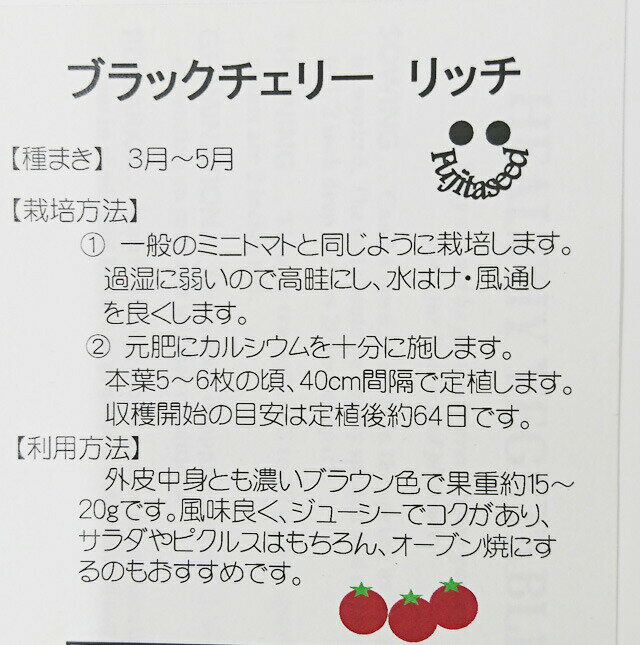 ブラックチェリー リッチ
Fujitaseed
【種まき】 3月～5月
【栽培方法】
① 一般のミニトマトと同じように栽培します。
過湿に弱いので高畦にし、水はけ・風通し
を良くします。
② 元肥にカルシウムを十分に施します。
本葉5～6枚の頃、40cm間隔で定植します。
収穫開始の目安は定植後約64日です。
【利用方法】
外皮中身とも濃いブラウン色で果重約15～
20gです。風味良く、ジューシーでコクがあり、
サラダやピクルスはもちろん、オーブン焼にす
るのもおすすめです。